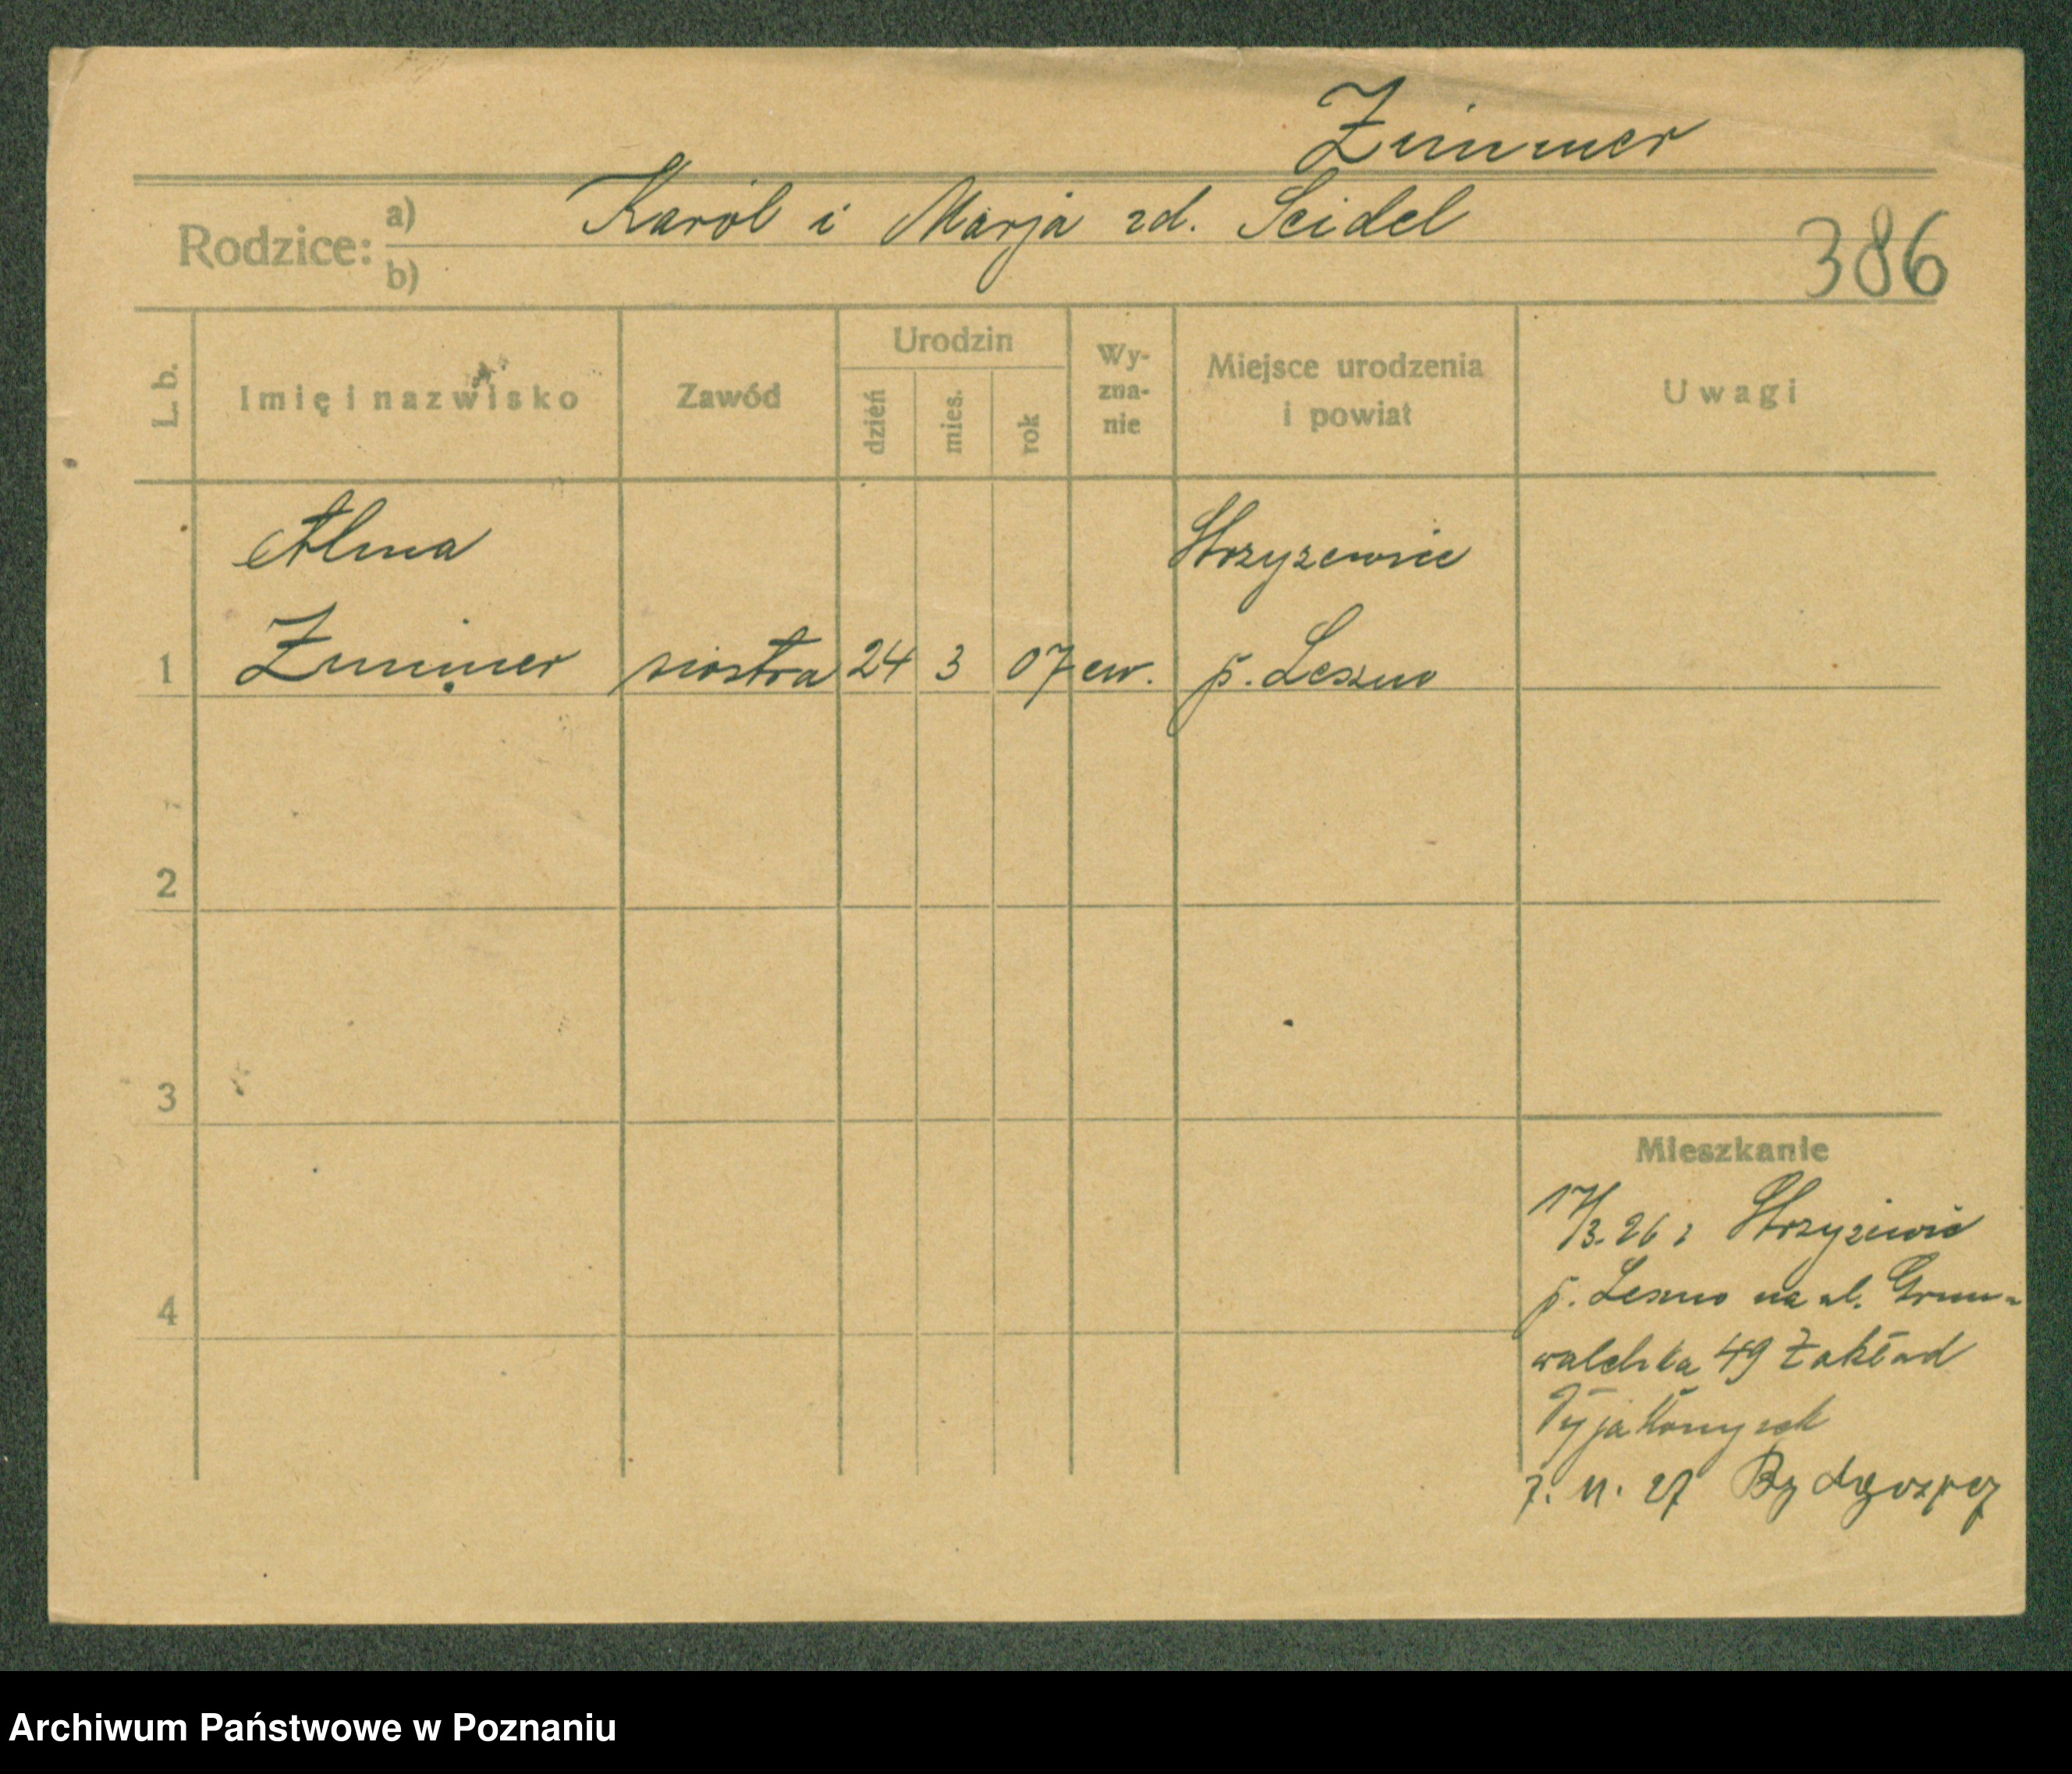 Zimmer
Rodzice: a) Karól i Marja zd. Seidel
b)
386
L. b. Imię i nazwisko Zawód Urodzin dzień mies. rok Wy-zna-nie Miejsce urodzenia i powiat Uwagi
Alma Strzyzewice
1 Zimmer siostra 24 3 07 ew. p. Leszno
2
3
Mieszkanie
17/3. 26 z Strzyżewic
p. Leszno na ul. Grun-
4
waldzka 49 Zakład
Dyjakonyszek
7. 11. 27 Bydgoszcz
Archiwum Państwowe w Poznaniu